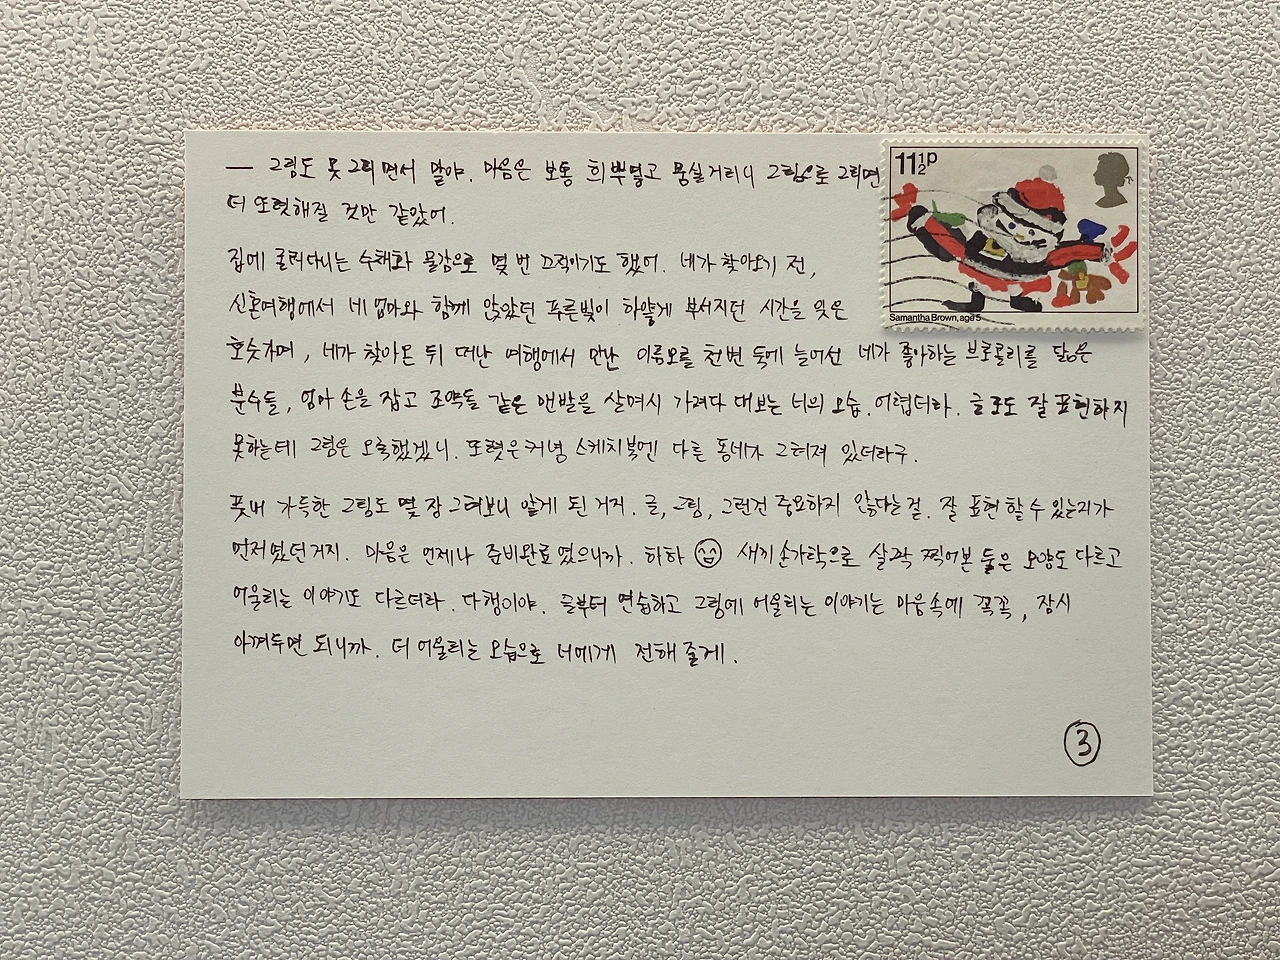 — 그림도 못 그리면서 말야. 마음은 보통 희뿌옇고 뭉실거리니 그림으로 그리면
더 또렷해질 것만 같았어.
집에 굴러다니는 수채화 물감으로 몇 번 끄적이기도 했어. 네가 찾아오기 전,
신혼여행에서 네 엄마와 함께 앉았던 푸른빛이 하얗게 부서지던 시간을 잊은
호숫가며, 네가 찾아온 뒤 떠난 여행에서 만난 이름모를 천변 둑에 늘어선 네가 좋아하는 브로콜리를 닮은
분수들, 엄마 손을 잡고 조약돌 같은 맨발을 살며시 가져다 대보는 너의 모습. 어렵더라. 글로도 잘 표현하지
못하는데 그림은 오죽했겠니. 또렷은커녕 스케치북엔 다른 동네가 그려져 있더라구.
풋내 가득한 그림도 몇 장 그려보니 알게 된 거지. 글, 그림, 그런건 중요하지 않다는 걸. 잘 표현 할 수 있는지가
먼저였던거지. 마음은 언제나 준비완료였으니까. 하하 새끼손가락으로 살짝 찍어본 둘은 모양도 다르고
어울리는 이야기도 다르더라. 다행이야. 글부터 연습하고 그림에 어울리는 이야기는 마음속에 꼭꼭, 잠시
아껴두면 되니까. 더 어울리는 모습으로 너에게 전해 줄게.
3
11½p
Samantha Brown, age 5